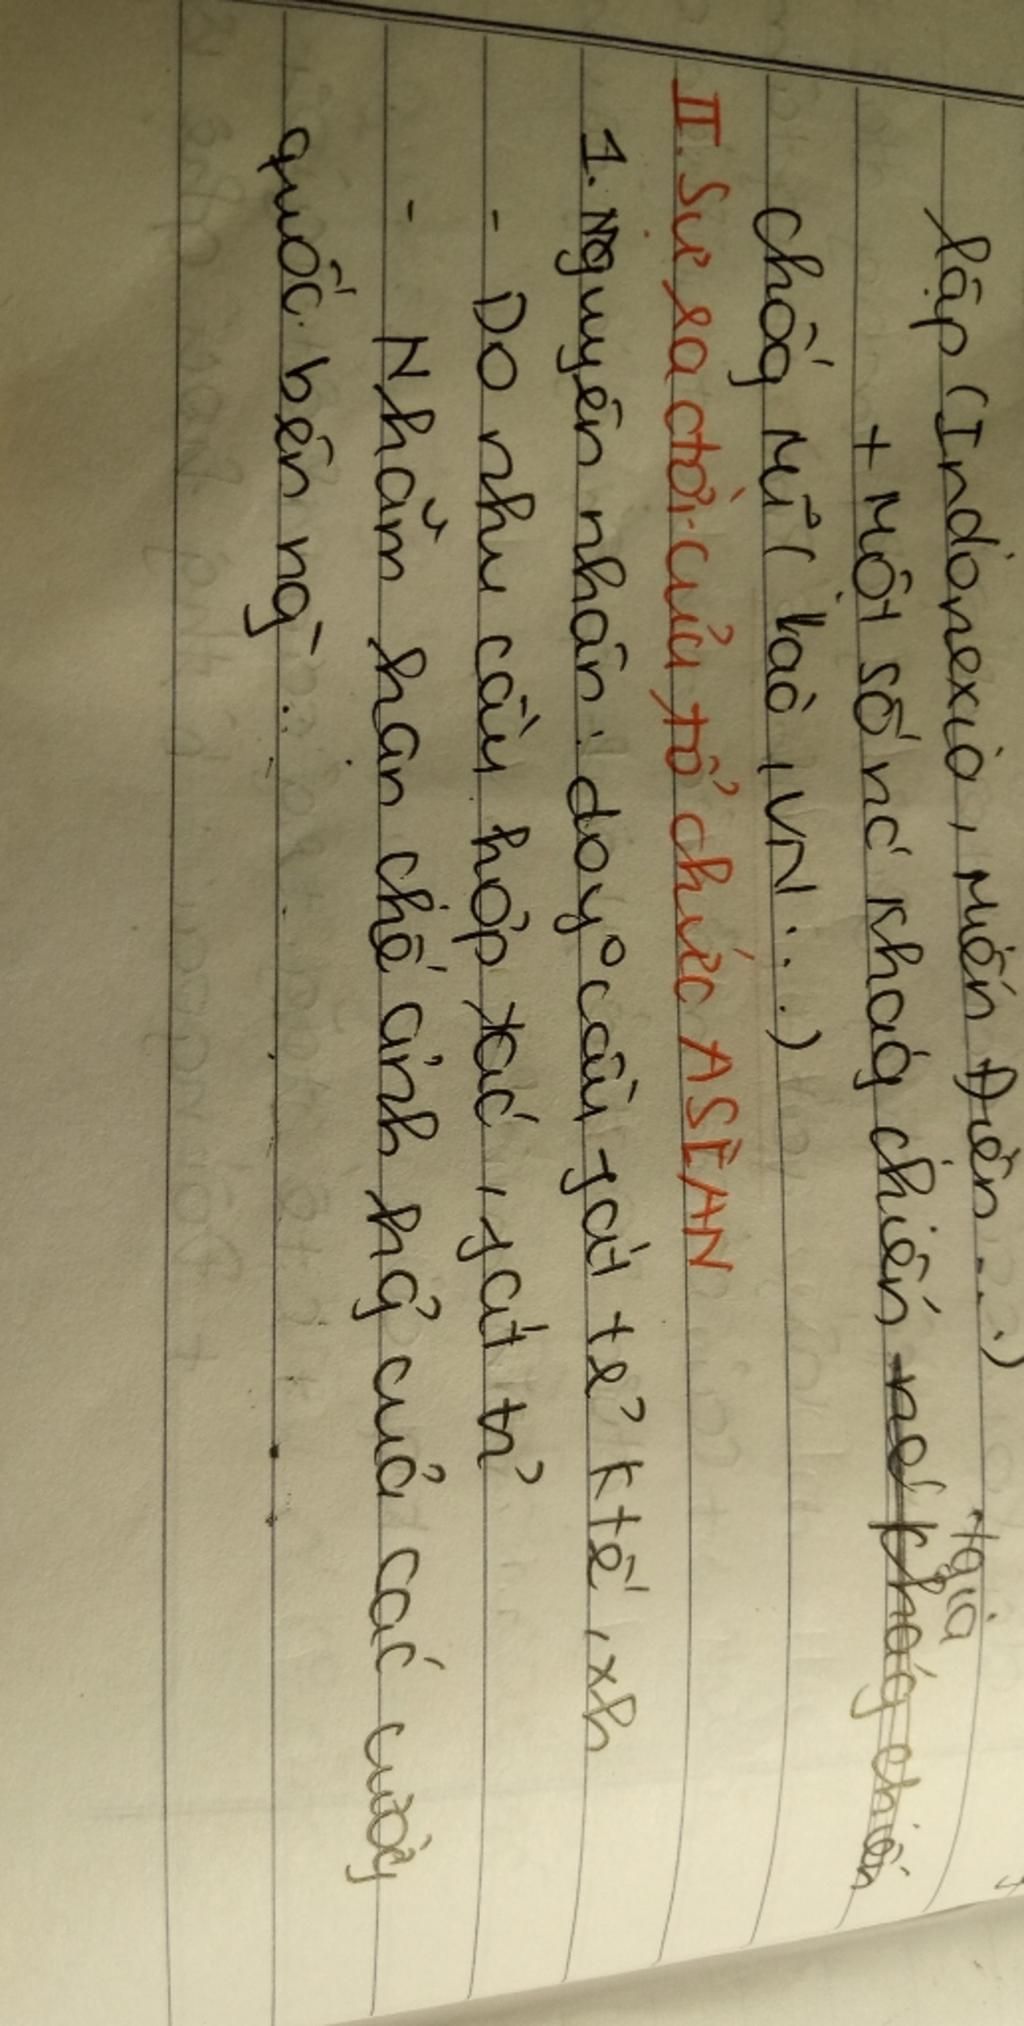 lập (Indonexia, Miến Điện...)
+ Một số nc' khág chiến
chốg Mĩ ( Lào, VN...)
II. Sự ra đời của tổ chức ASEAN
1. Nguyên nhân: do y° cầu ptát tể ktế, xh
- Do nhu cầu hợp tác, ptát tr'
- Nhằm hạn chế ảnh hg̉ của các cườg
quốc bên ng`...